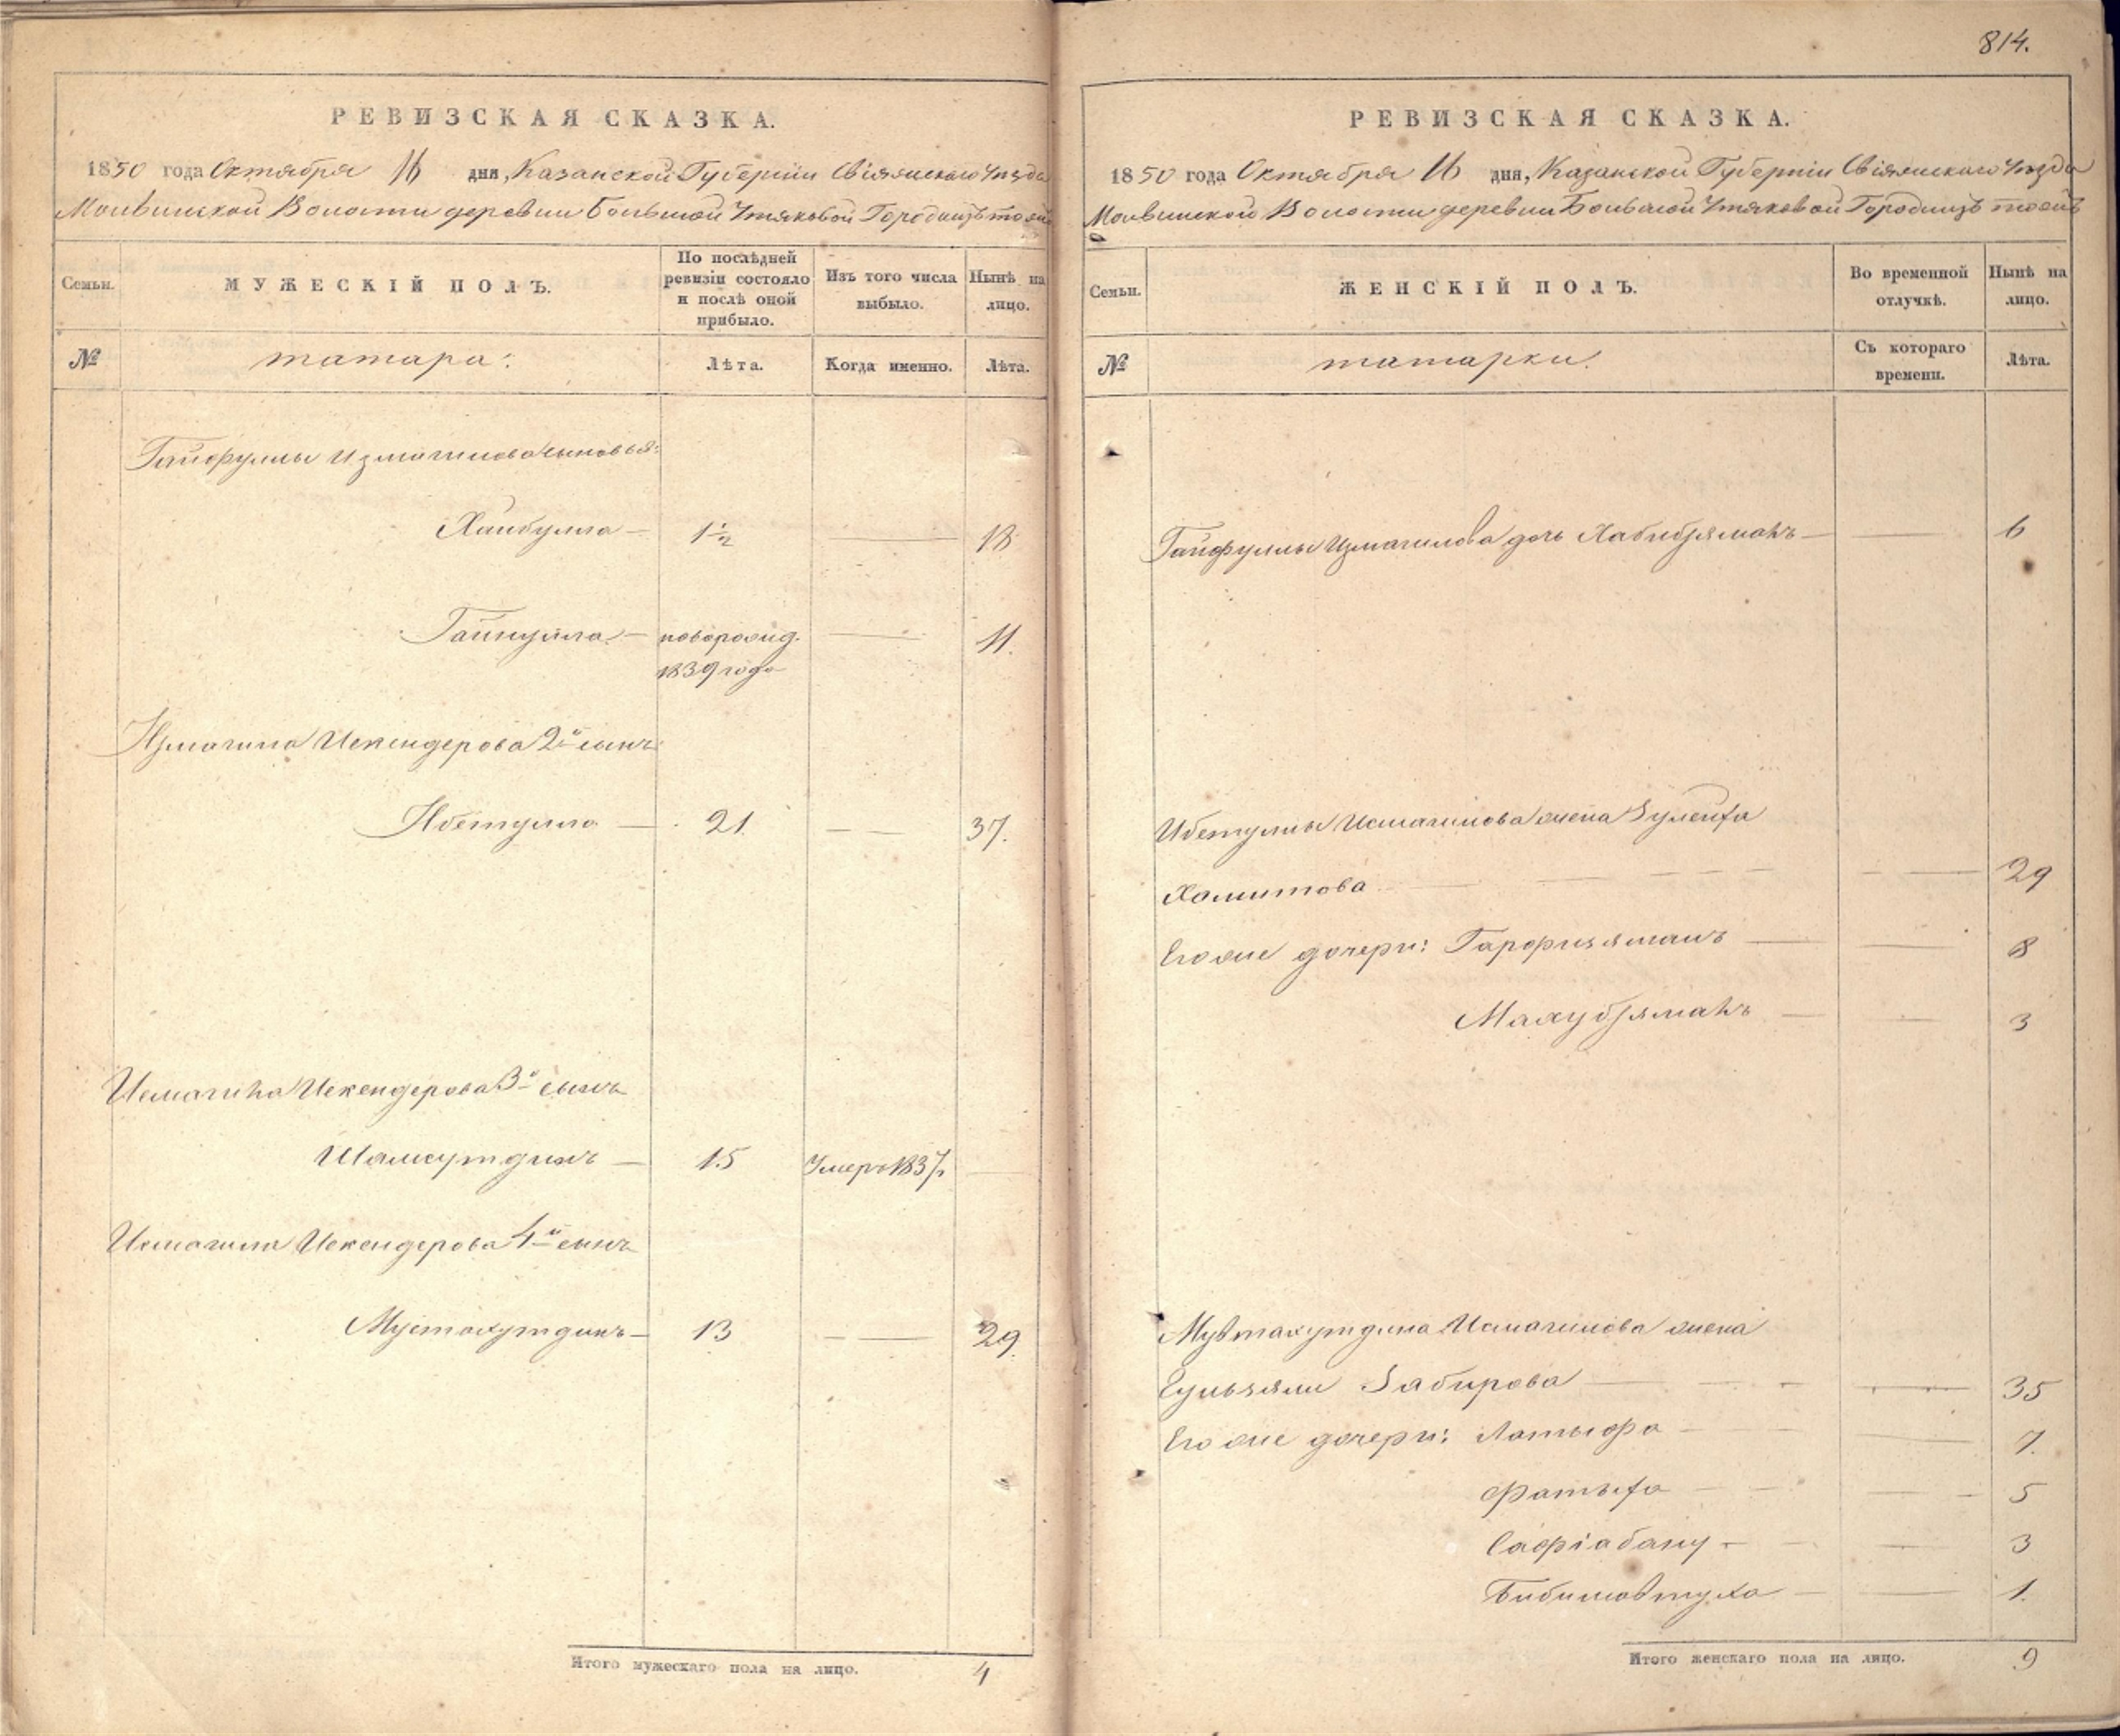 814.
РЕВИЗСКАЯ СКАЗКА.
1850 года Октября 16 дня, Казанской Губерніи Свіяжскаго Уѣзда
Волости деревни Большой Утяковой Городищъ тожъ
Семьи. МУЖЕСКІЙ ПОЛЪ. По послѣдней ревизіи состояло и послѣ оной прибыло. Изъ того числа выбыло. Нынѣ на лицо.
№ татара: Лѣта. Когда именно. Лѣта.
Гайфуллы Измагилова сыновья:
Хайбулла — 1½ — 18
Гайнулла — новорожд. — 11.
1839 года
Измагила Искендерова 2й сынъ
Ибетулла — 21. — 37.
Исмагила Искендерова 3й сынъ
Шамсутдинъ — 15 Умеръ 1837 —
Исмагила Искендерова 4й сынъ
Мустахутдинъ — 13 — 29.
Итого мужескаго пола на лицо. 4
РЕВИЗСКАЯ СКАЗКА.
1850 года Октября 16 дня, Казанской Губерніи Свіяжскаго Уѣзда
Волости деревни Большой Утяковой Городищъ тожъ
Семьи. ЖЕНСКІЙ ПОЛЪ. Во временной отлучкѣ. Нынѣ на лицо.
№ татарки. Съ котораго времени. Лѣта.
Гайфуллы Измагилова дочь Хабибзяманъ — — 6
Ибетуллы Исмагилова жена Зулейха
Хамитова — — 29
Его же дочери: Гарфизяманъ — — 8
Махубзяманъ — — 3
Мувтахутдина Исмагилова жена
Гульзями Забирова — — 35
Его же дочери: Латыфа — — 7.
Фатыха — — 5
Сафіабану — — 3
— — 1.
Итого женскаго пола на лицо. 9